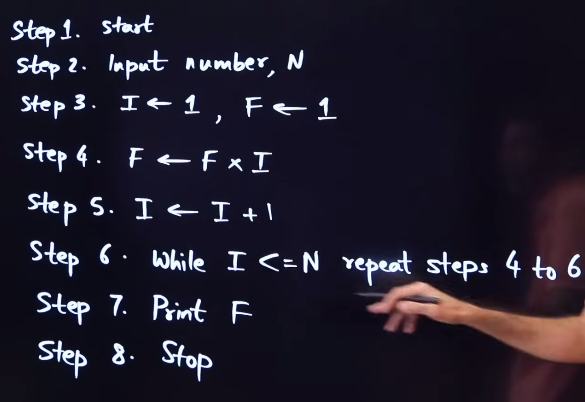 Step 1. Start
Step 2. Input number, N
Step 3. I ← 1, F ← 1
Step 4. F ← F x I
Step 5. I ← I + 1
Step 6. While I <= N repeat steps 4 to 6
Step 7. Print F
Step 8. Stop